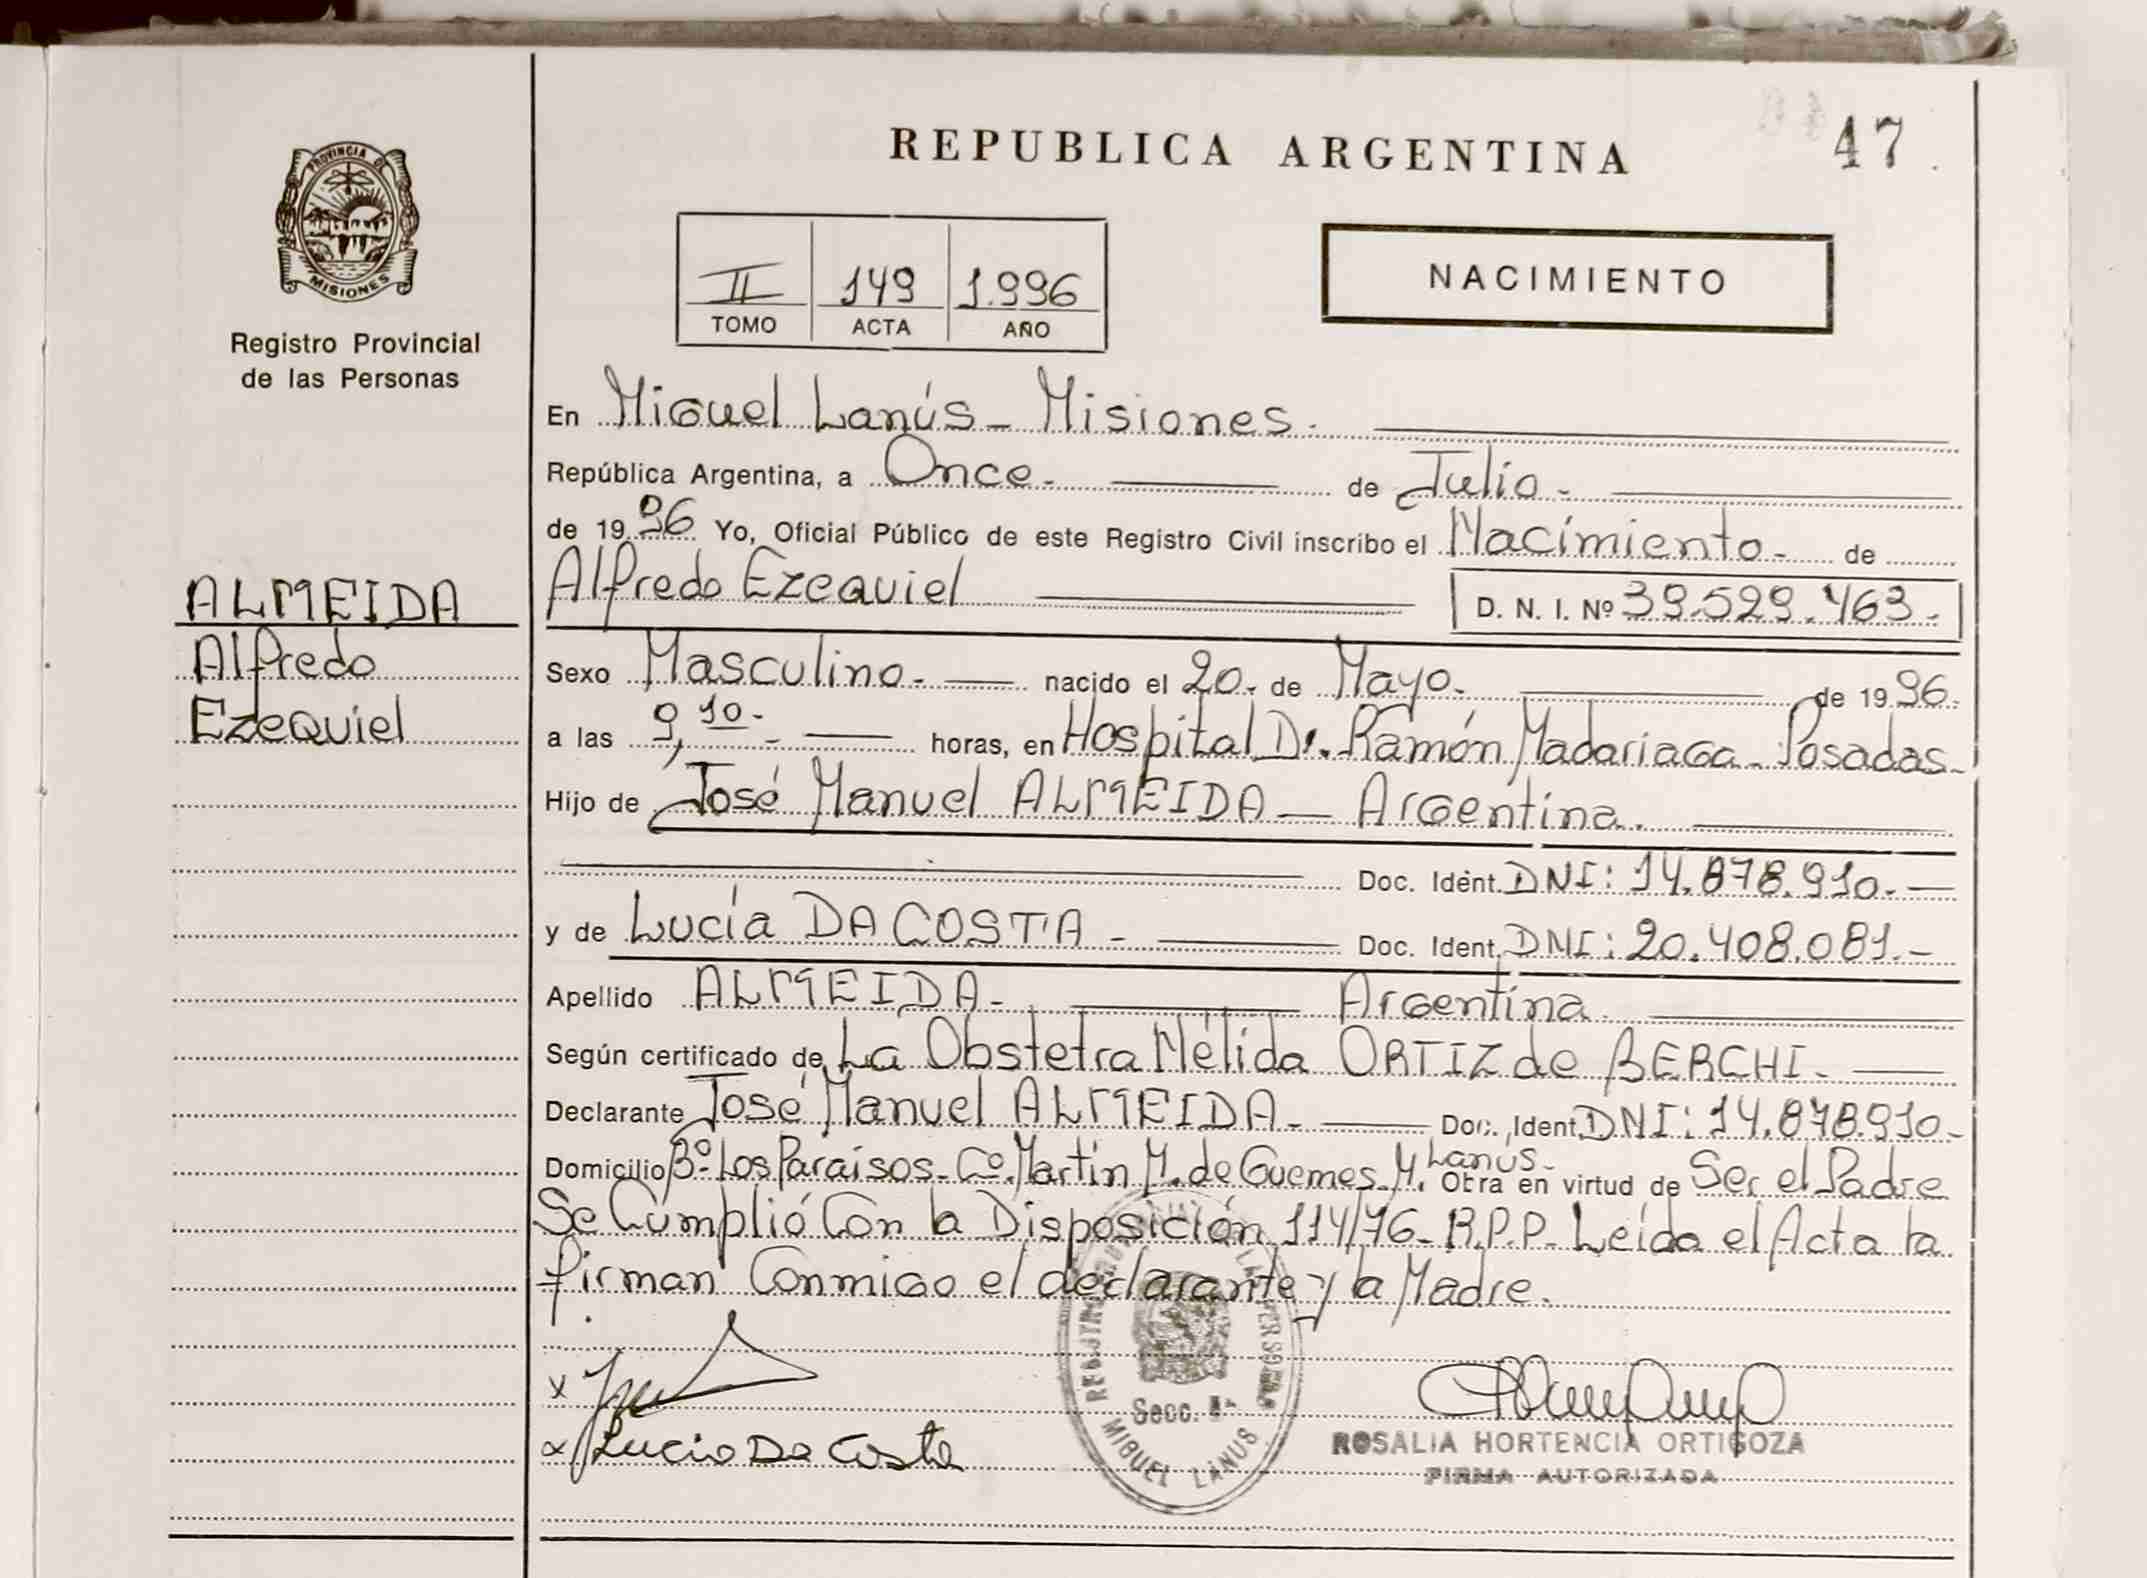 REPUBLICA ARGENTINA
47
PROVINCIA DE
MISIONES
Registro Provincial
de las Personas
II 149 1.996
TOMO ACTA AÑO
NACIMIENTO
En Miguel Lanús - Misiones.
República Argentina, a Once. de Julio.
de 1996 Yo, Oficial Público de este Registro Civil inscribo el Nacimiento. de
ALMEIDA
Alfredo
Ezequiel
Alfredo Ezequiel D. N. I. Nº 39.529.463.
Sexo Masculino. nacido el 20. de Mayo. de 1996.
a las 9,10. horas, en Hospital Dr. Ramón Madariaga - Posadas.
Hijo de José Manuel ALMEIDA - Argentina.
Doc. Ident. DNI: 14.878.910.
y de Lucía DA COSTA. Doc. Ident. DNI: 20.408.081.
Apellido ALMEIDA. Argentina
Según certificado de La Obstetra Nélida ORTIZ de BERCHI.
Declarante José Manuel ALMEIDA. Doc. Ident. DNI: 14.878.910.
Domicilio Bº. Los Paraisos - Cº. Martin M. de Guemes M. Lanus. Obra en virtud de Ser el Padre
Se Cumplió Con la Disposición 114/76 - R.P.P. Leída el Acta la
firman Conmigo el declarante y la Madre.
x
x Lucia Da Costa
Secc. 1ª
MIGUEL LANUS
ROSALIA HORTENCIA ORTIGOZA
FIRMA AUTORIZADA